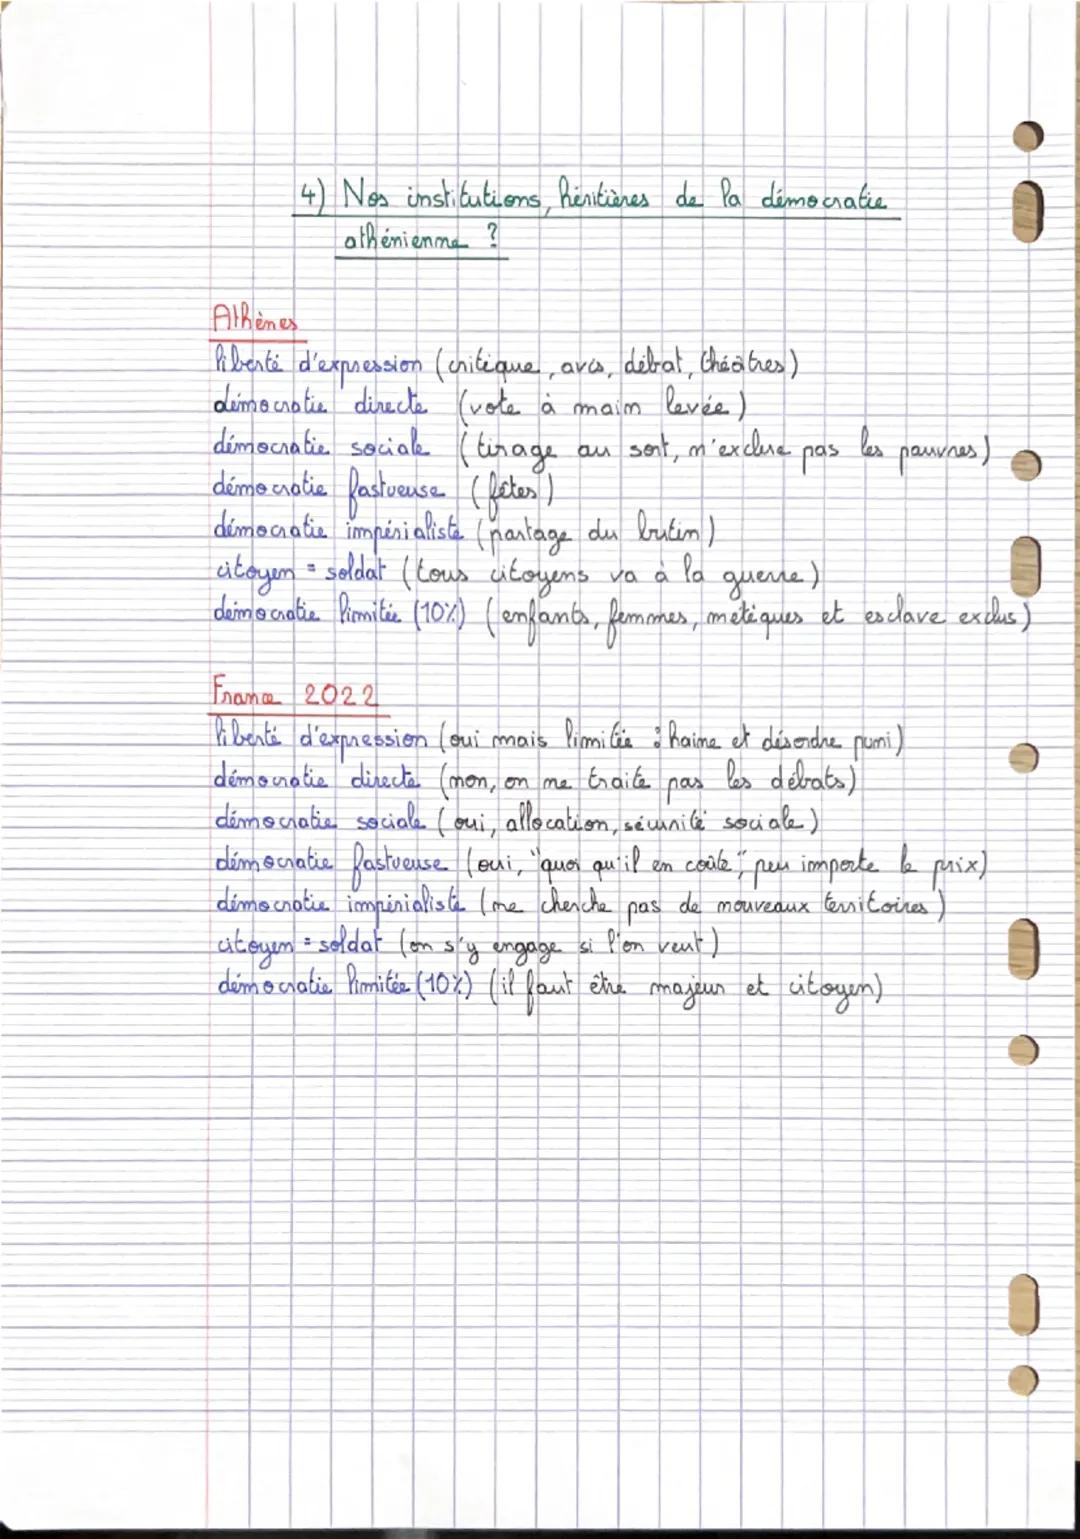 4) Nos institutions, héritières de la démocratie
athénienne ?
Athènes
liberté d'expression (critique, avis, débat, théâtres)
démocratie directe (vote à main levée)
démocratie sociale (tirage au sort, n'exclure pas les pauvres)
démocratie fastueuse (fêtes)
démocratie impérialiste (partage du butin)
citoyen = soldat (tous citoyens va à la guerre)
démocratie limitée (10%) (enfants, femmes, métèques et esclave exclus)
France 2022
liberté d'expression (oui mais limitée : haine et désordre puni)
démocratie directe (non, on ne traite pas les débats)
démocratie sociale (oui, allocation, sécurité sociale)
démocratie fastueuse (oui, "quoi qu'il en coûte", peu importe le prix)
démocratie impérialiste (ne cherche pas de nouveaux territoires)
citoyen = soldat (on s'y engage si l'on veut)
démocratie limitée (10%) (il faut être majeur et citoyen)